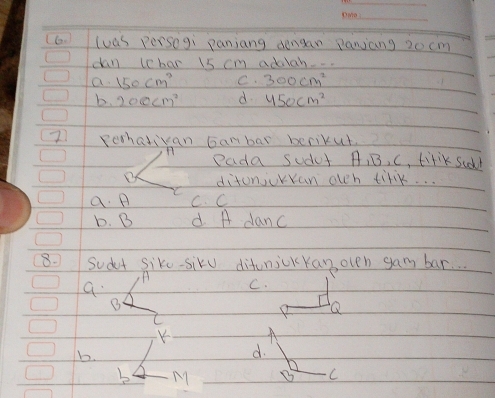 No:
Date:
6. Luas persegi panjang dengan panjang 20 cm
dan lebar 15 cm adalah...
a. 150 cm² c. 300 cm²
b. 200 cm² d. 450 cm²
7. Perhatikan Gambar berikut.
A
B
C
Pada sudut A, B, C, titik sudut
ditunjukkan oleh titik...
a. A c. C
b. B d. A dan C
8. Sudut siku-siku ditunjukkan oleh gambar...
a. A B C
c. P Q
b. K L M
d. A B C